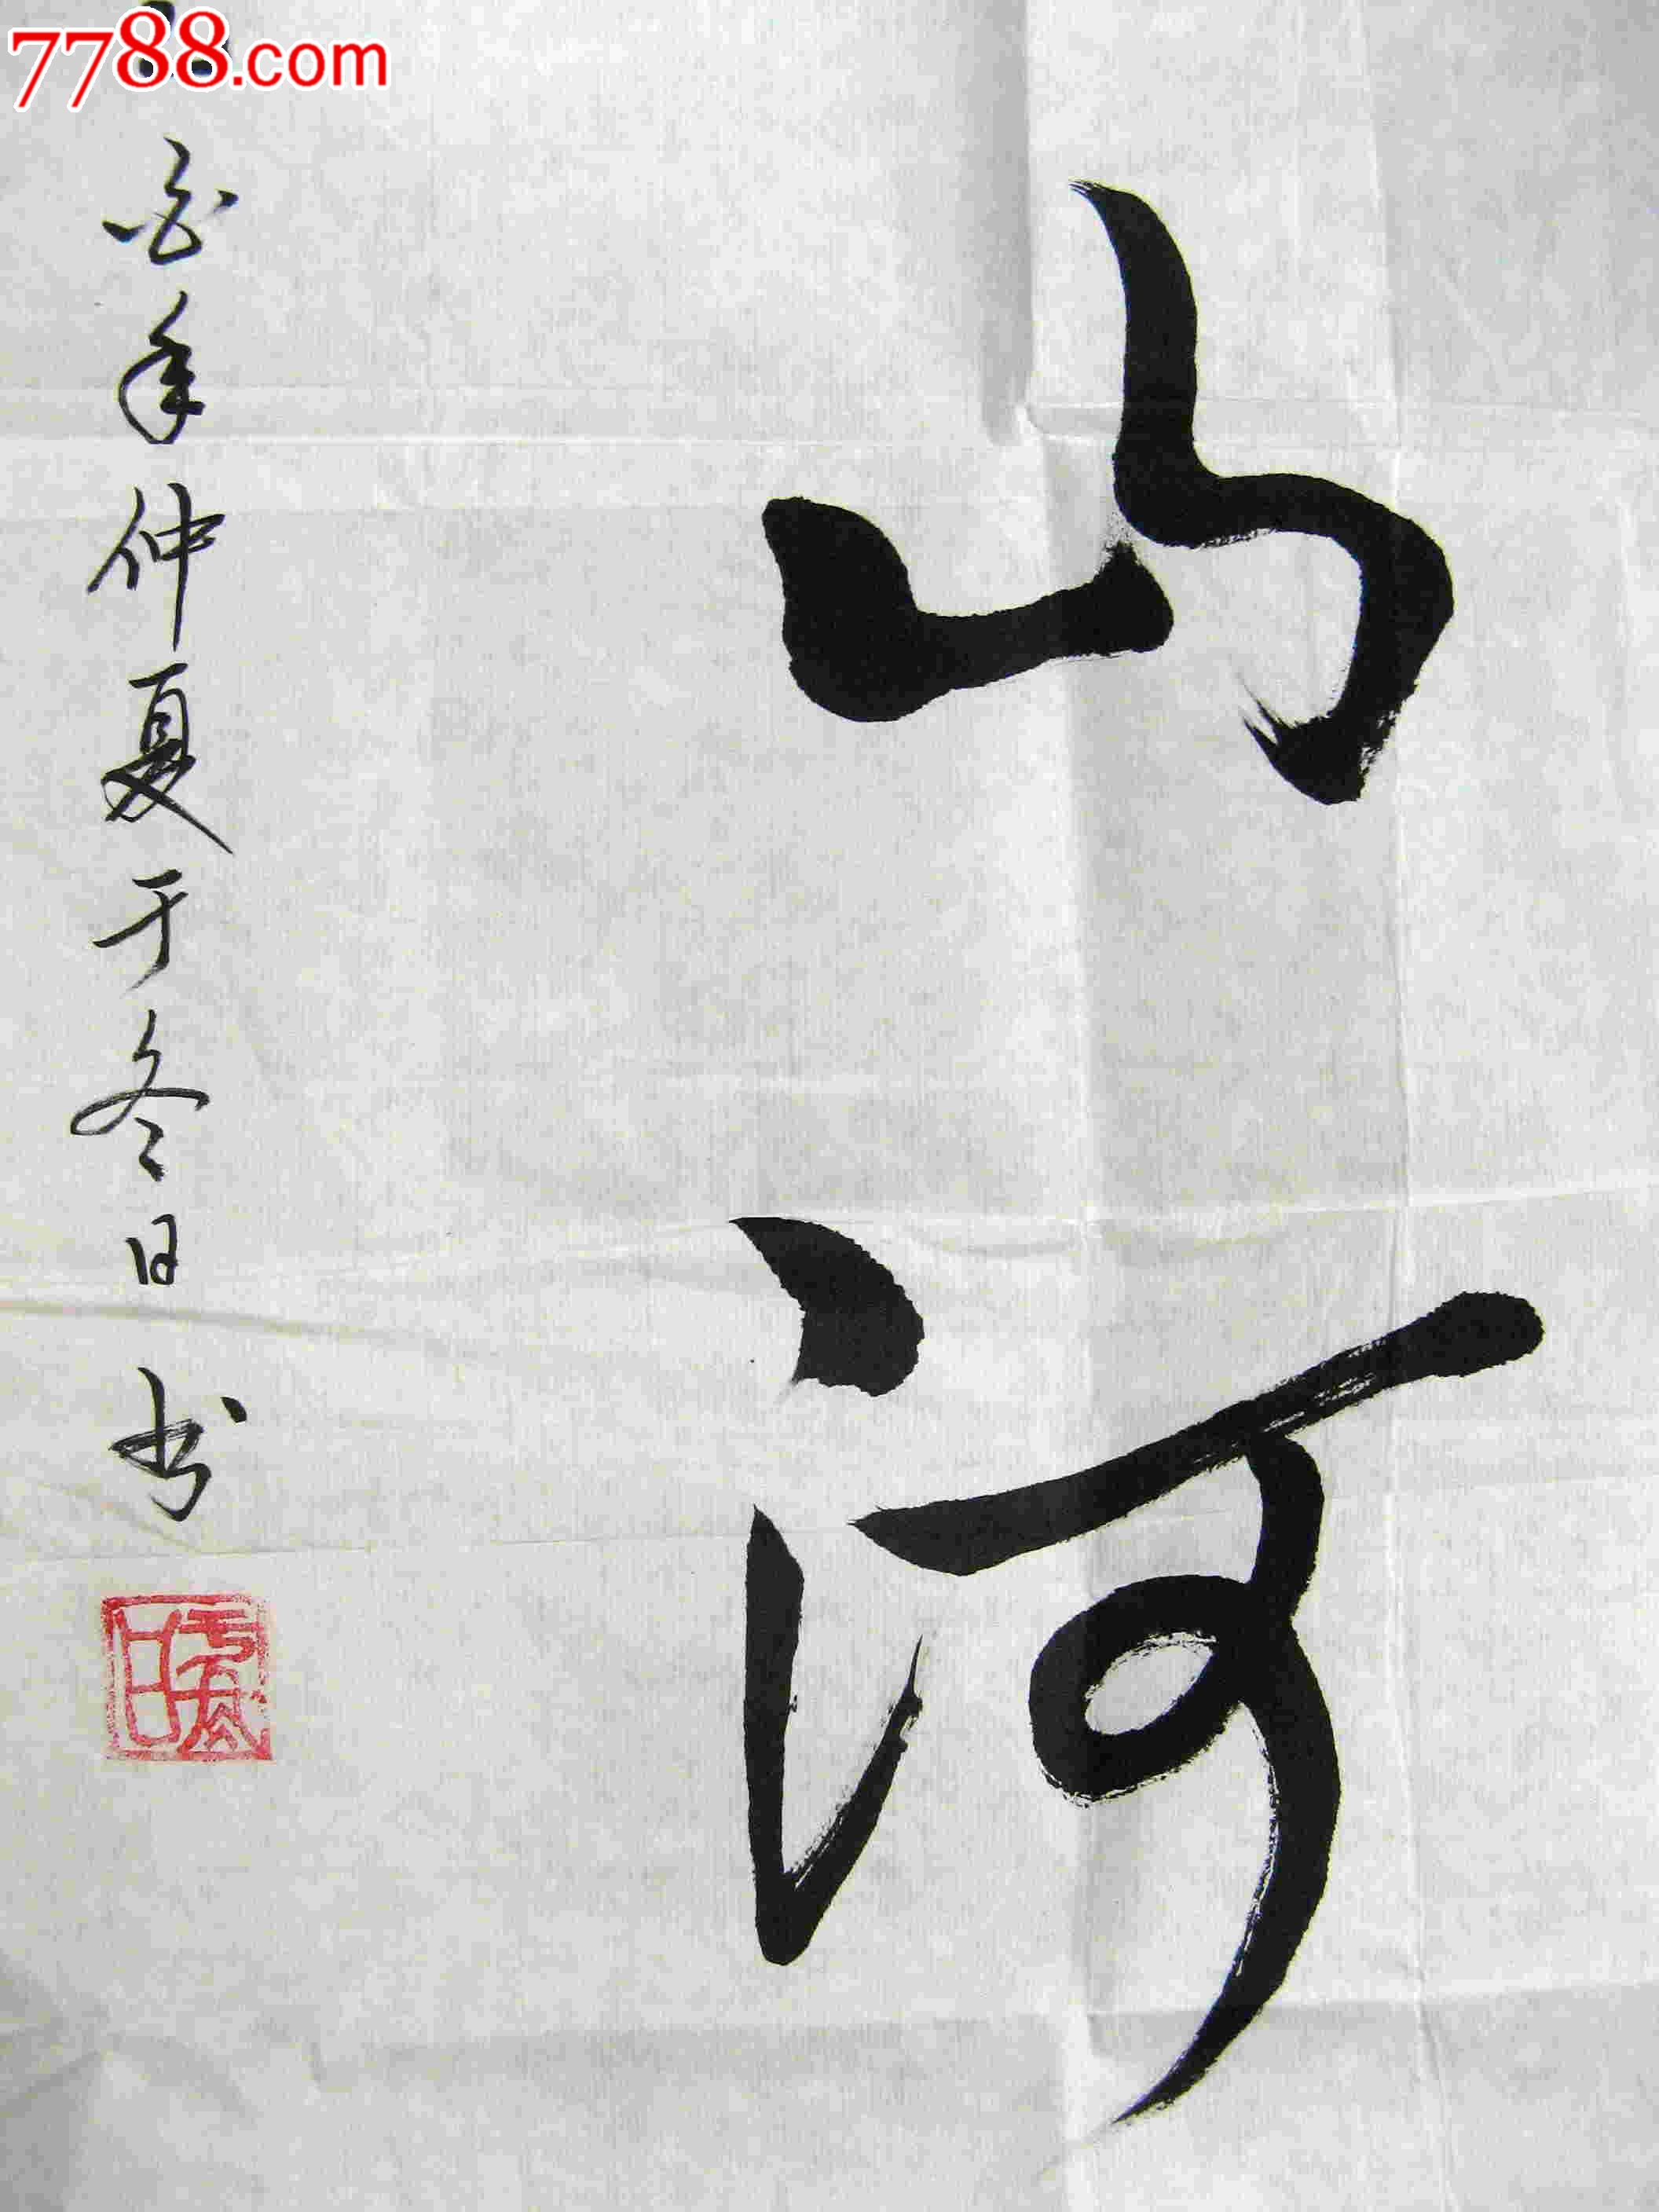 7788.com
山河
年仲夏于冬日书